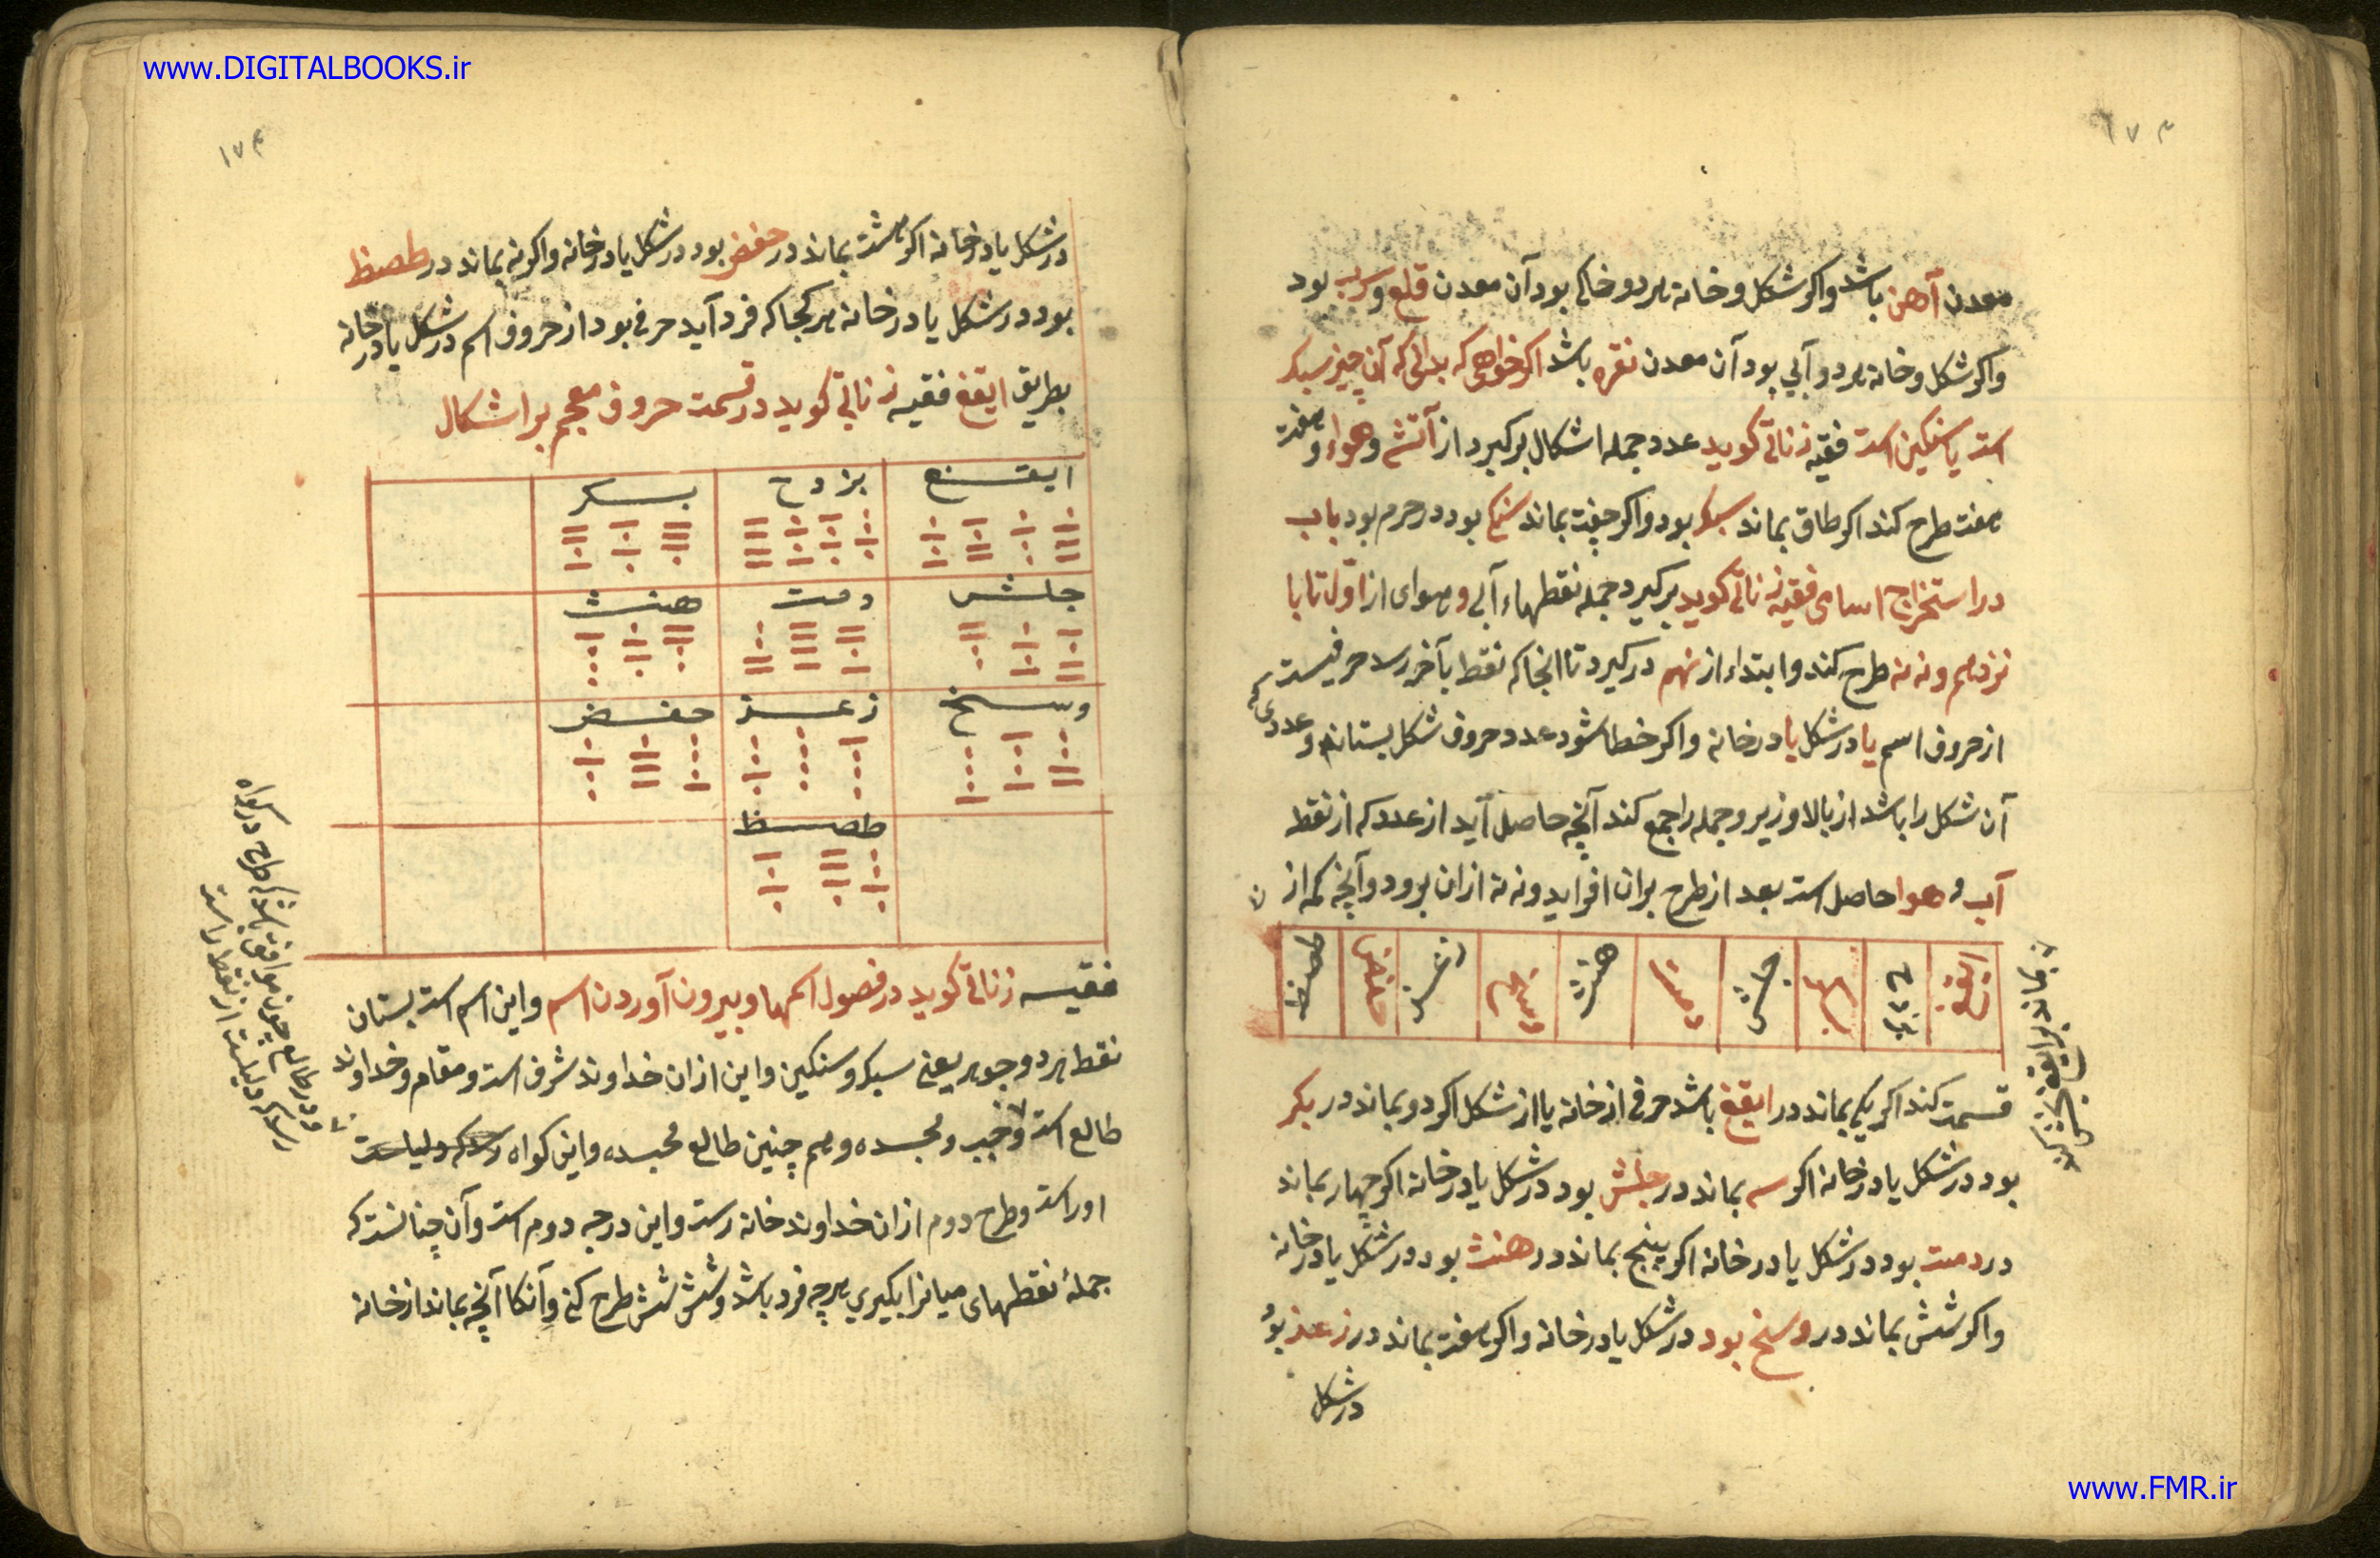 www.DIGITALBOOKS.ir
۱۷۳
معدن آهن باشد واکر شکل وخانه هر دو خاکی بود آن معدن قلع وسرب بود
واکر شکل وخانه هر دو آبی بود آن معدن نقره باشد اکر خواهی که بدانی که آن چیز سبک
است یا سنکین است فقیه زناتی کوید عدد جمله اشکال برکیرد از آتش وهواء وهفت
هفت طرح کند اکر طاق بماند سبک بود واکر جفت بماند بود در حرم بود باب
در استخراج اسامی فقیه زناتی کوید برکیرد جمله نقطهاء آبی وهوای از اول تا با
نزدهم ونه نه طرح کند وابتداء از نهم درکیرد تا انجا که نقط بآخر رسد حرفیست
از حروف اسم یا در شکل یا در خانه واکر خطا شود عدد حروف شکل بستاند وعددی که
آن شکل را باشد از بالا وزیر وجمله را جمع کند آنچه حاصل آید از عدد که از نقط
آب و هوا حاصل است بعد از طرح بران افزاید ونه نه ازان برود وآنچه کم از ن
ایقغ بکر جلش دمت هنث وسخ زعذ حفض طصظ
قسمت کند اکر یکی بماند در ایقغ باشد حرفی از خانه یا از شکل اکر دو بماند در بکر
بود در شکل یا در خانه اکر سه بماند در جلش بود در شکل یا در خانه اکر چهار بماند
در دمت بود در شکل یا در خانه اکر پنج بماند در هنث بود در شکل یا در خانه
واکر شش بماند در وسخ بود در شکل یا در خانه واکر هفت بماند در زعذ بود
در شکل
۱۷۴
در شکل یا در خانه اکر هشت بماند در حفض بود در شکل یا در خانه واکر نه بماند در طصظ
بود در شکل یا در خانه هر کجا که فرد آید حرفی بود از حروف اسم در شکل یا در خانه
بطریق ایقغ فقیه زناتی کوید در قسمت حروف معجم بر اشکال
ایقغ بزدح بسکر
جلش دمت هنث
وسخ زعذ حفض
طصظ
فقیه زناتی کوید در فصول اسمها وبیرون آوردن اسم واین اسم است بستان
نقط هر دو جوهر یعنی سبک وسنکین واین ازان خداوند شرف است ومقام وخداوند
طالع است ومجسده وهم چنین طالع مجسده واین کواه
اوراست وطرح دوم ازان خداوند خانه رست واین درجه دوم است وآن چنانست که
جملهٔ نقطهای میانرا بکیری هرچه فرد باشد وشش شش طرح کنی وآنکا آنچه بماند از خانه
www.FMR.ir